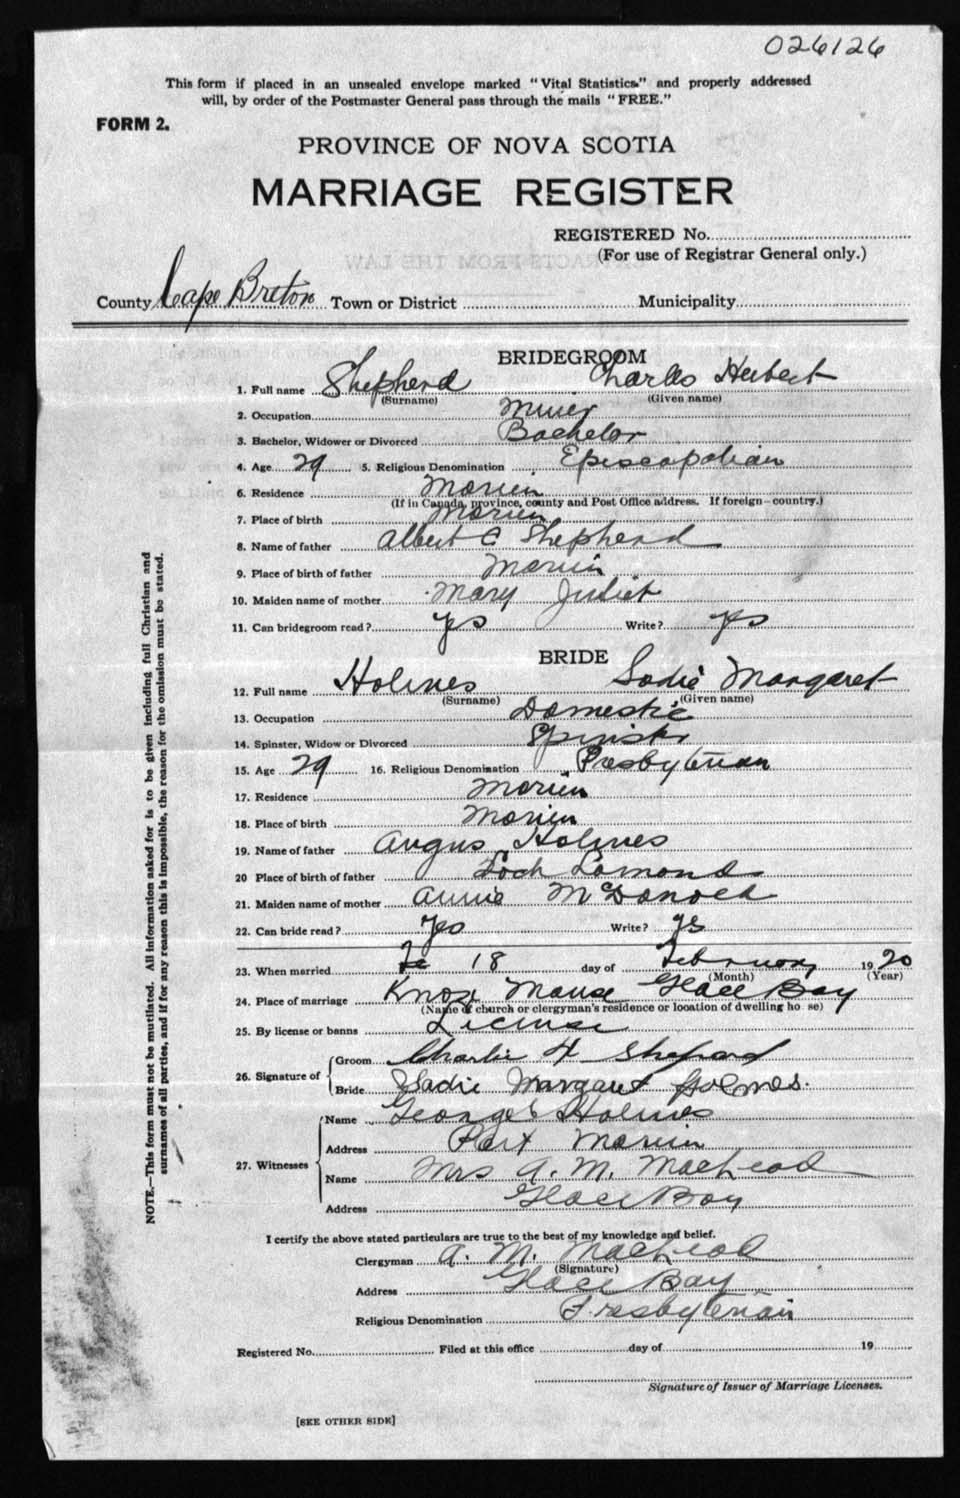 026126
This form if placed in an unsealed envelope marked "Vital Statistics" and properly addressed
will, by order of the Postmaster General pass through the mails "FREE."
FORM 2.
PROVINCE OF NOVA SCOTIA
MARRIAGE REGISTER
REGISTERED No.
(For use of Registrar General only.)
County Cape Breton Town or District Municipality
BRIDEGROOM
1. Full name Shepherd Charles Herbert
(Surname) (Given name)
2. Occupation Miner
3. Bachelor, Widower or Divorced Bachelor
4. Age 29 5. Religious Denomination Episcopalian
6. Residence Morien
(If in Canada, province, county and Post Office address. If foreign—country.)
7. Place of birth Morien
8. Name of father Albert C Shepherd
9. Place of birth of father Morien
10. Maiden name of mother Mary Juliet
11. Can bridegroom read? Yes Write? Yes
BRIDE
12. Full name Holmes Sadie Margaret
(Surname) (Given name)
13. Occupation Domestic
14. Spinster, Widow or Divorced Spinster
15. Age 29 16. Religious Denomination Presbyterian
17. Residence Morien
18. Place of birth Morien
19. Name of father Angus Holmes
20 Place of birth of father Loch Lomond
21. Maiden name of mother Annie McDonald
22. Can bride read? Yes Write? Yes
23. When married 18 day of February 1920
(Month) (Year)
24. Place of marriage Knox Manse Glace Bay
(Name of church or clergyman's residence or location of dwelling ho se)
25. By license or banns License
26. Signature of Groom Charlie H Shepard
Bride Sadie Margaret Holmes.
27. Witnesses Name George Holmes
Address Port Morien
Name Mrs A. M. MacLeod
Address Glace Bay
I certify the above stated particulars are true to the best of my knowledge and belief.
Clergyman A. M. MacLeod
(Signature)
Address Glace Bay
Religious Denomination Presbyterian
Registered No. Filed at this office day of 19
Signature of Issuer of Marriage Licenses.
[SEE OTHER SIDE]
NOTE.—This form must not be mutilated. All information asked for is to be given including full Christian and
surnames of all parties, and if for any reason this is impossible, the reason for the omission must be stated.